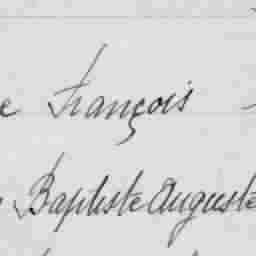 François
Baptiste Auguste